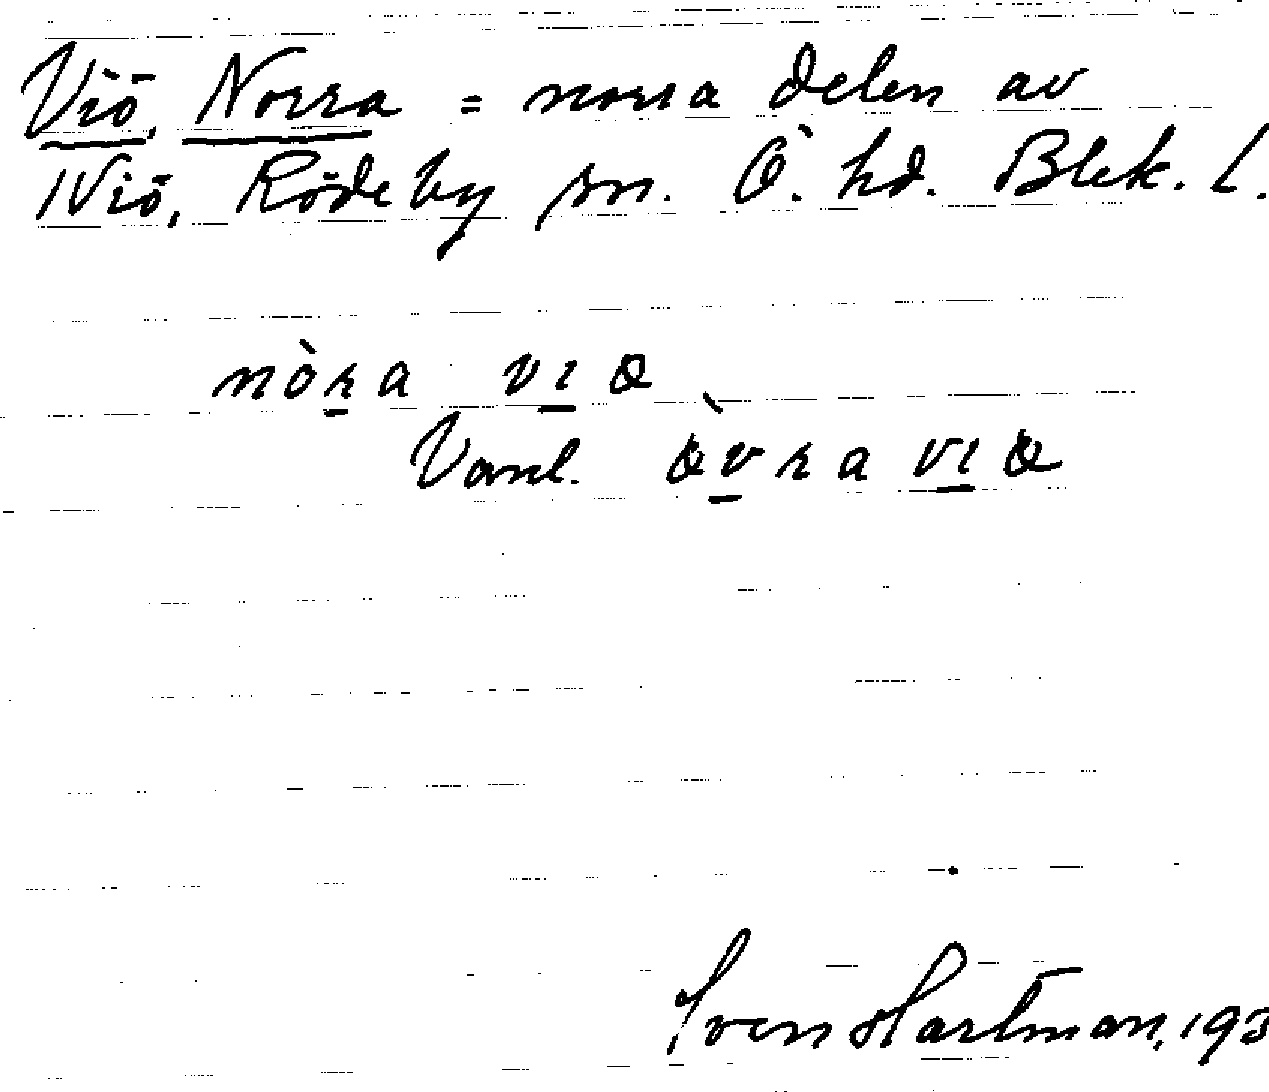 Viö, Norra = norra delen av
1 Viö, Rödeby sn. Ö. hd. Blek. l.
nòra viø
Vanl. øvra viø
Sven Hartman, 193